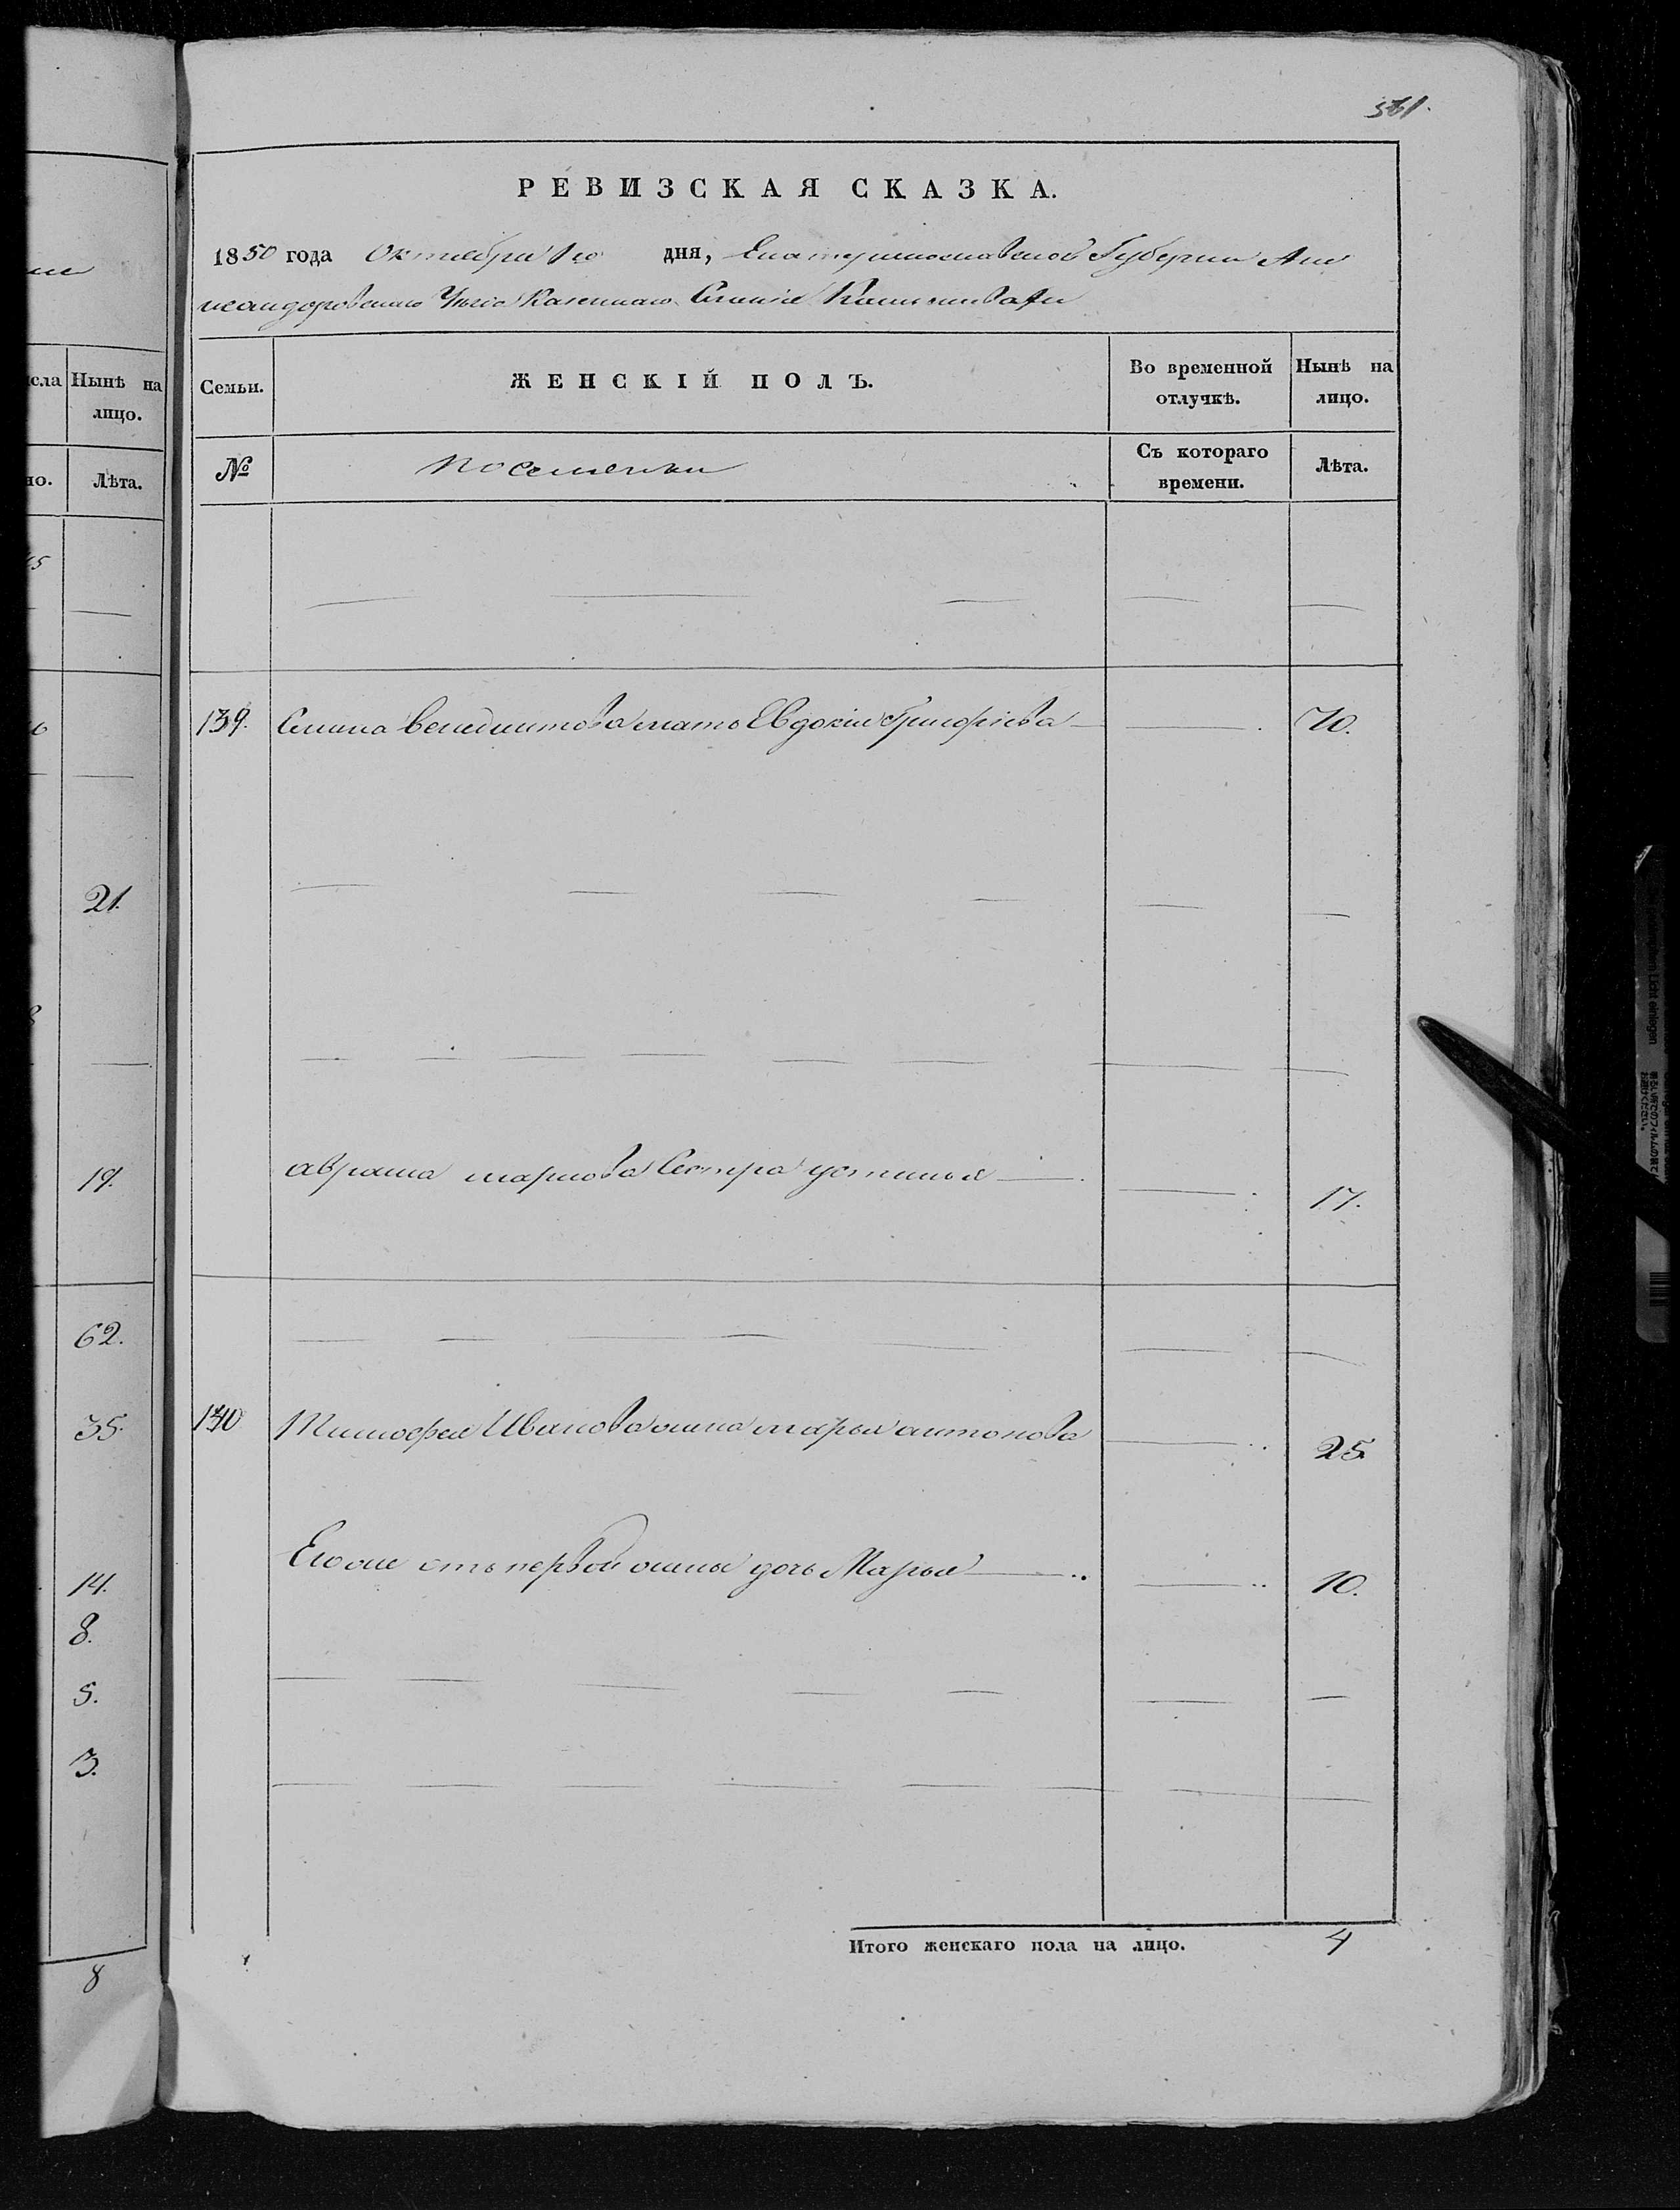 561.
РЕВИЗСКАЯ СКАЗКА.
1850 года Октября 1го дня, Екатеринославской Губернии Але
ксандровскаго Уѣзда Казеннаго Селенія
сла
Нынѣ на лицо.
но.
Лѣта.
21.
19.
62.
35.
14.
8.
5.
3.
8
Семьи.
ЖЕНСКІЙ ПОЛЪ.
Во временной отлучкѣ.
Нынѣ на лицо.
№
Поселенки
Съ котораго времени.
Лѣта.
139. Семена венедиктова мать Евдокія Григорьева 70.
аврама маркова Сестра устинья 17.
140 Тимофея Иванова жена марья антонова 25.
Егоже отъ первой жены дочь Марья 10.
Итого женскаго пола на лицо. 4